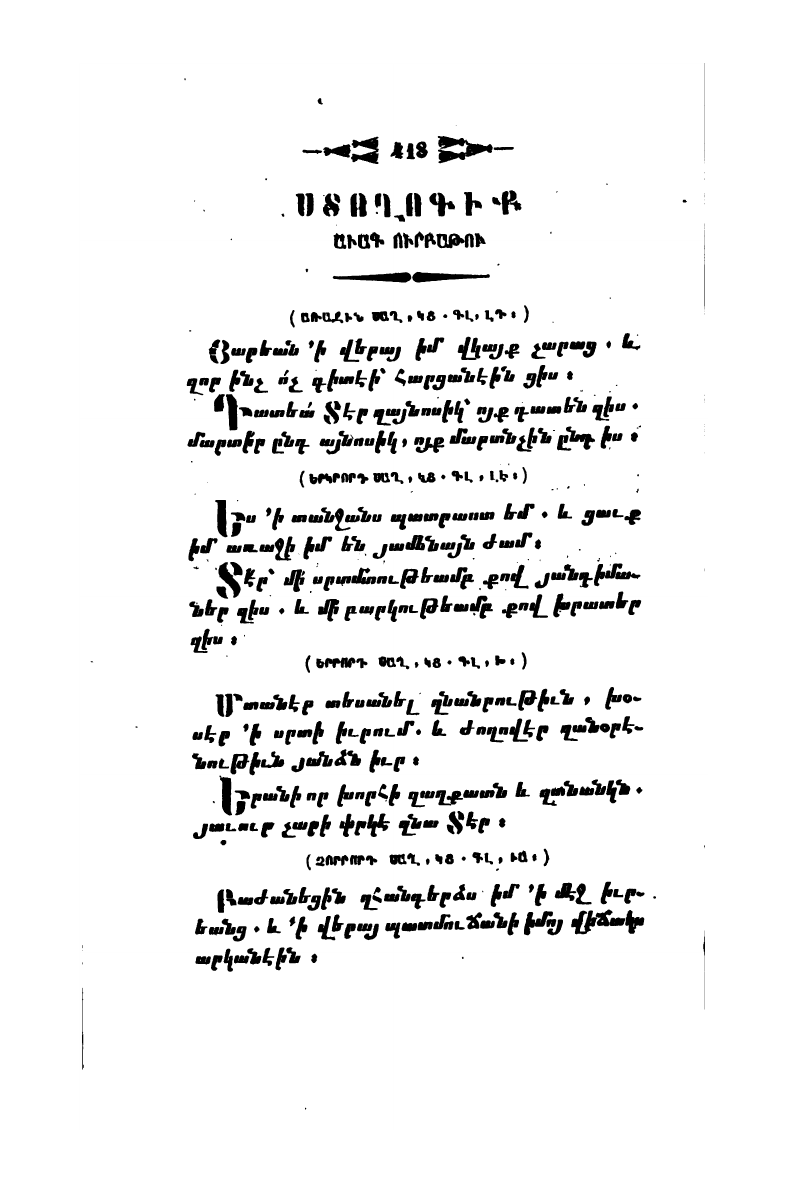 418
ՍՏՈՂՈԳԻՔ
ԱՒԱԳ ՈՒՐԲԱԹՈՒ
(ԱՌԱՋԻՆ ՍԱՂ, ԿՑ. ԳԼ, ԼԴ։)
Յարեան ՚ի վերայ իմ վկայք չարաց. և
զոր ինչ ո՛չ գիտէի՝ հարցանէին ցիս։
Դատեա՛ Տէր զայնոսիկ՝ ոյք դատեն զիս.
մարտիր ընդ այնոսիկ, ոյք մարտնչին ընդ իս։
(ԵՐԿՐՈՐԴ ՍԱՂ, ԿՑ. ԳԼ, ԼԷ։)
Ես ՚ի տանջանս պատրաստ եմ. և ցաւք
իմ առաջի իմ են յամենայն ժամ։
Տէր՝ մի սրտմտութեամբ քով յանդիմա֊
ներ զիս. և մի բարկութեամբ քով խրատեր
զիս։
(ԵՐՐՈՐԴ ՍԱՂ, ԿՑ. ԳԼ, Խ։)
Մտանէր տեսանել զնանրութիւն, խօ֊
սէր ՚ի սրտի իւրում. և ժողովէր զանօրէ֊
նութիւն յանձն իւր։
Երանի որ խորհի զաղքատն և զտնանկն.
յաւուր չարի փրկէ զնա Տէր։
(ՉՈՐՐՈՐԴ ՍԱՂ, ԿՑ. ԳԼ, ԻԱ։)
Բաժանեցին զհանդերձս իմ ՚ի մէջ իւր֊
եանց. և ՚ի վերայ պատմուճանի իմոյ վիճակս
արկանէին։